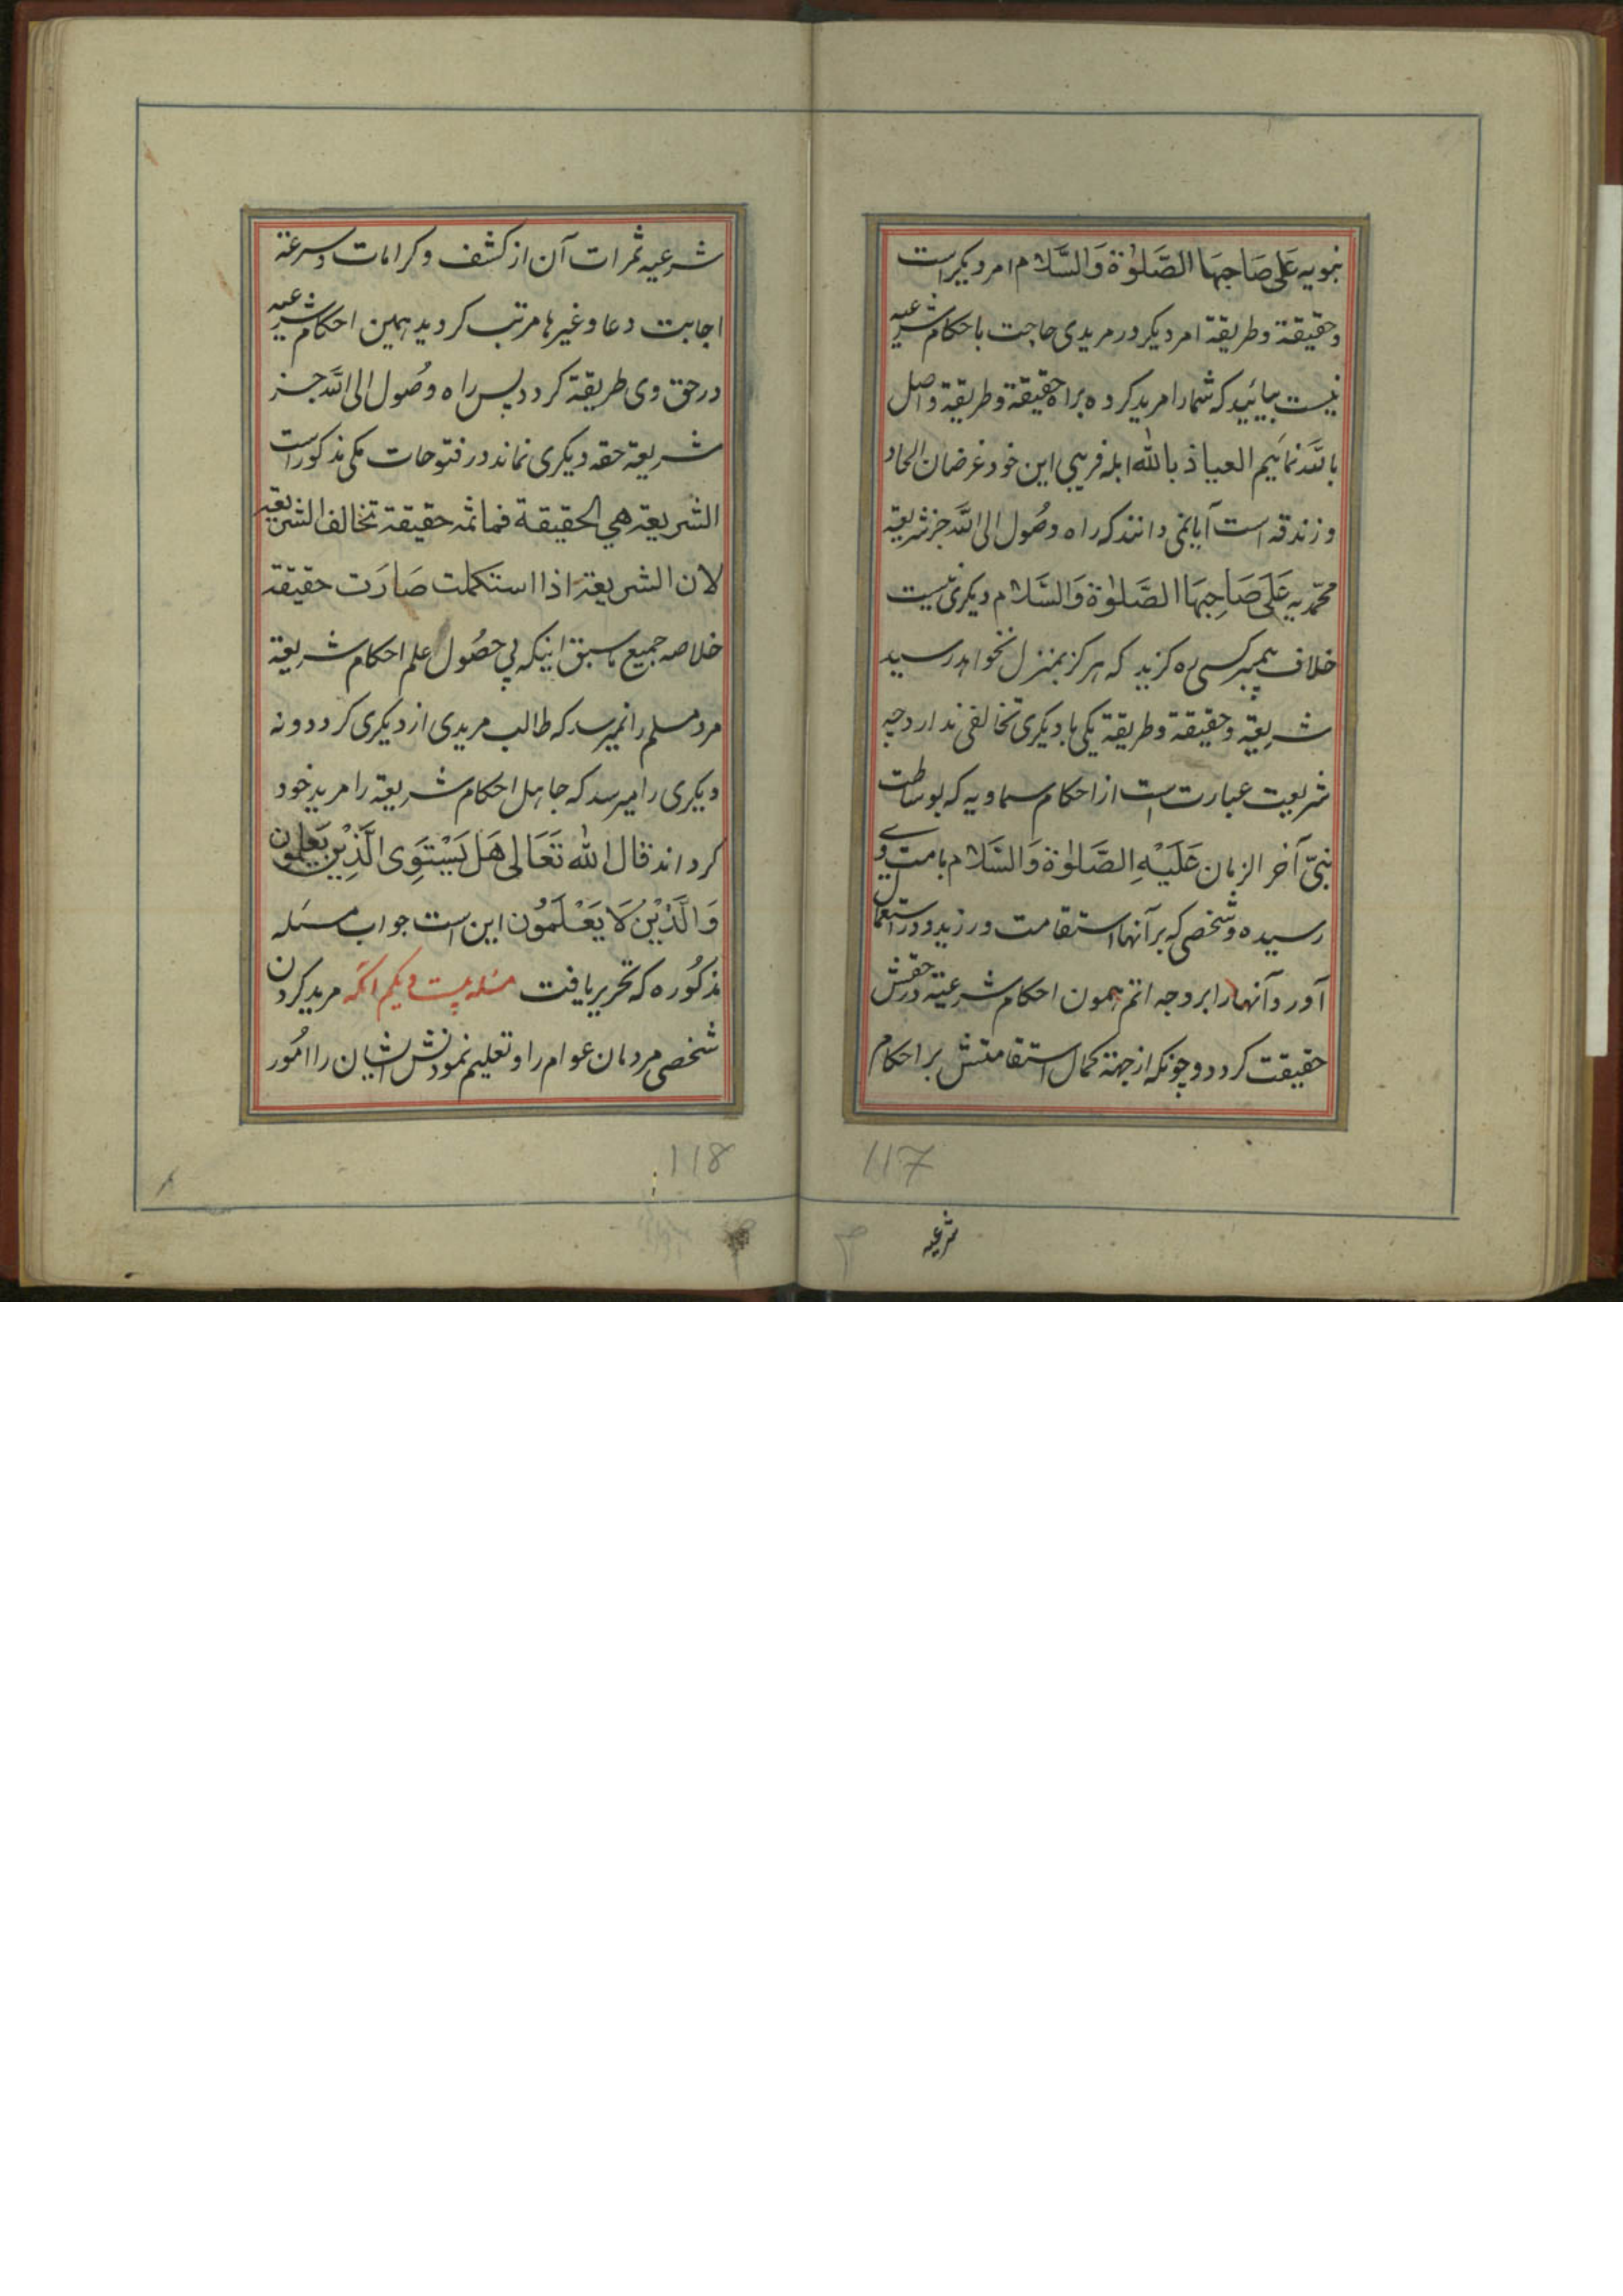 نبویه عَلی صَاحِبِهَا الصَّلوٰة وَالسَّلام امر دیکر است
وحقیقة وطریقة امر دیکر ودر مریدی حاجت باحکام شرعیه
نیست بیائید که شما را مرید کرده براه حقیقة وطریقة واصل
باللّٰه نمائیم العیاذ بالله ابله فریبی این خود غرضان الحاد
وزندقه است آیا نمی دانند که راه وصُول الی اللّٰه جز شریعة
محمّدیه عَلَی صَاحِبِهَا الصَّلوٰة وَالسَّلام دیکری نیست
خلاف پیمبر کسی ره کزید که هرکز بمنزل نخواهد رسید
شریعة وحقیقة وطریقة یکی با دیکری تخالفی ندارد چه
شریعت عبارت است از احکام سماویه که بوساطت
نبیّ آخر الزمان عَلَیْهِ الصَّلوٰة وَالسَّلام بامت وی
رسیده وشخصی که برآنها استقامت ورزید ودر استعمال
آورد آنها را بر وجه اتم همون احکام شرعیة در حقش
حقیقت کردد وچونکه از جهة کمال استقامتش بر احکام
117
شرعیه
شرعیه ثمرات آن از کشف وکرامات وسرعة
اجابت دعا وغیرها مرتب کردید همین احکام شرعیه
در حق وی طریقة کردد پس راه وصُول الی اللّٰه جز
شریعة حقه دیکری نماند در فتوحات مکی مذکور است
الشریعة هي الحقیقة فما ثمه حقیقة تخالف الشریعة
لان الشریعة اذا استکملت صَارَت حقیقة
خلاصه جمیع ما سبق اینکه بی حصُول علم احکام شریعة
مرد مسلم را نمیرسد که طالب مریدی از دیکری کردد ونه
دیکری را میرسد که جاهل احکام شریعة را مرید خود
کرداند قال الله تَعَالی هَل یَسْتَوِی الَّذِیْنَ یَعْلَمُون
وَالَّذِیْنَ لَا یَعْلَمُون این است جواب مسئله
مذکُوره که تحریر یافت مسئله بیست ویکم آنکه مرید کردن
شخصی مردمان عوام را وتعلیم نمودنش ایشان را امُور
118